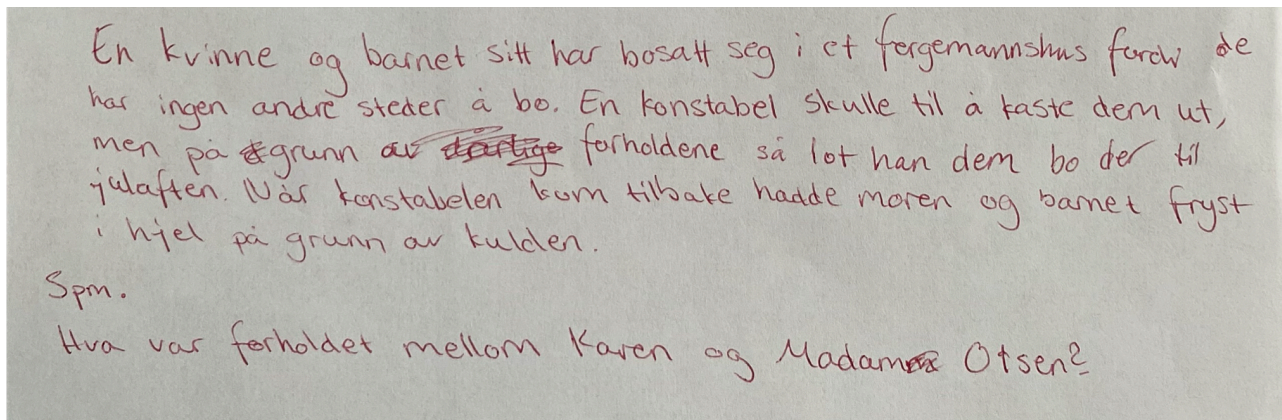 En kvinne og barnet sitt har bosatt seg i et fergemannshus fordi de
har ingen andre steder å bo. En konstabel skulle til å kaste dem ut,
men på grunn av forholdene så lot han dem bo der til
julaften. Når konstabelen kom tilbake hadde moren og barnet fryst
i hjel på grunn av kulden.
Spm.
Hva var forholdet mellom Karen og Madam Olsen?